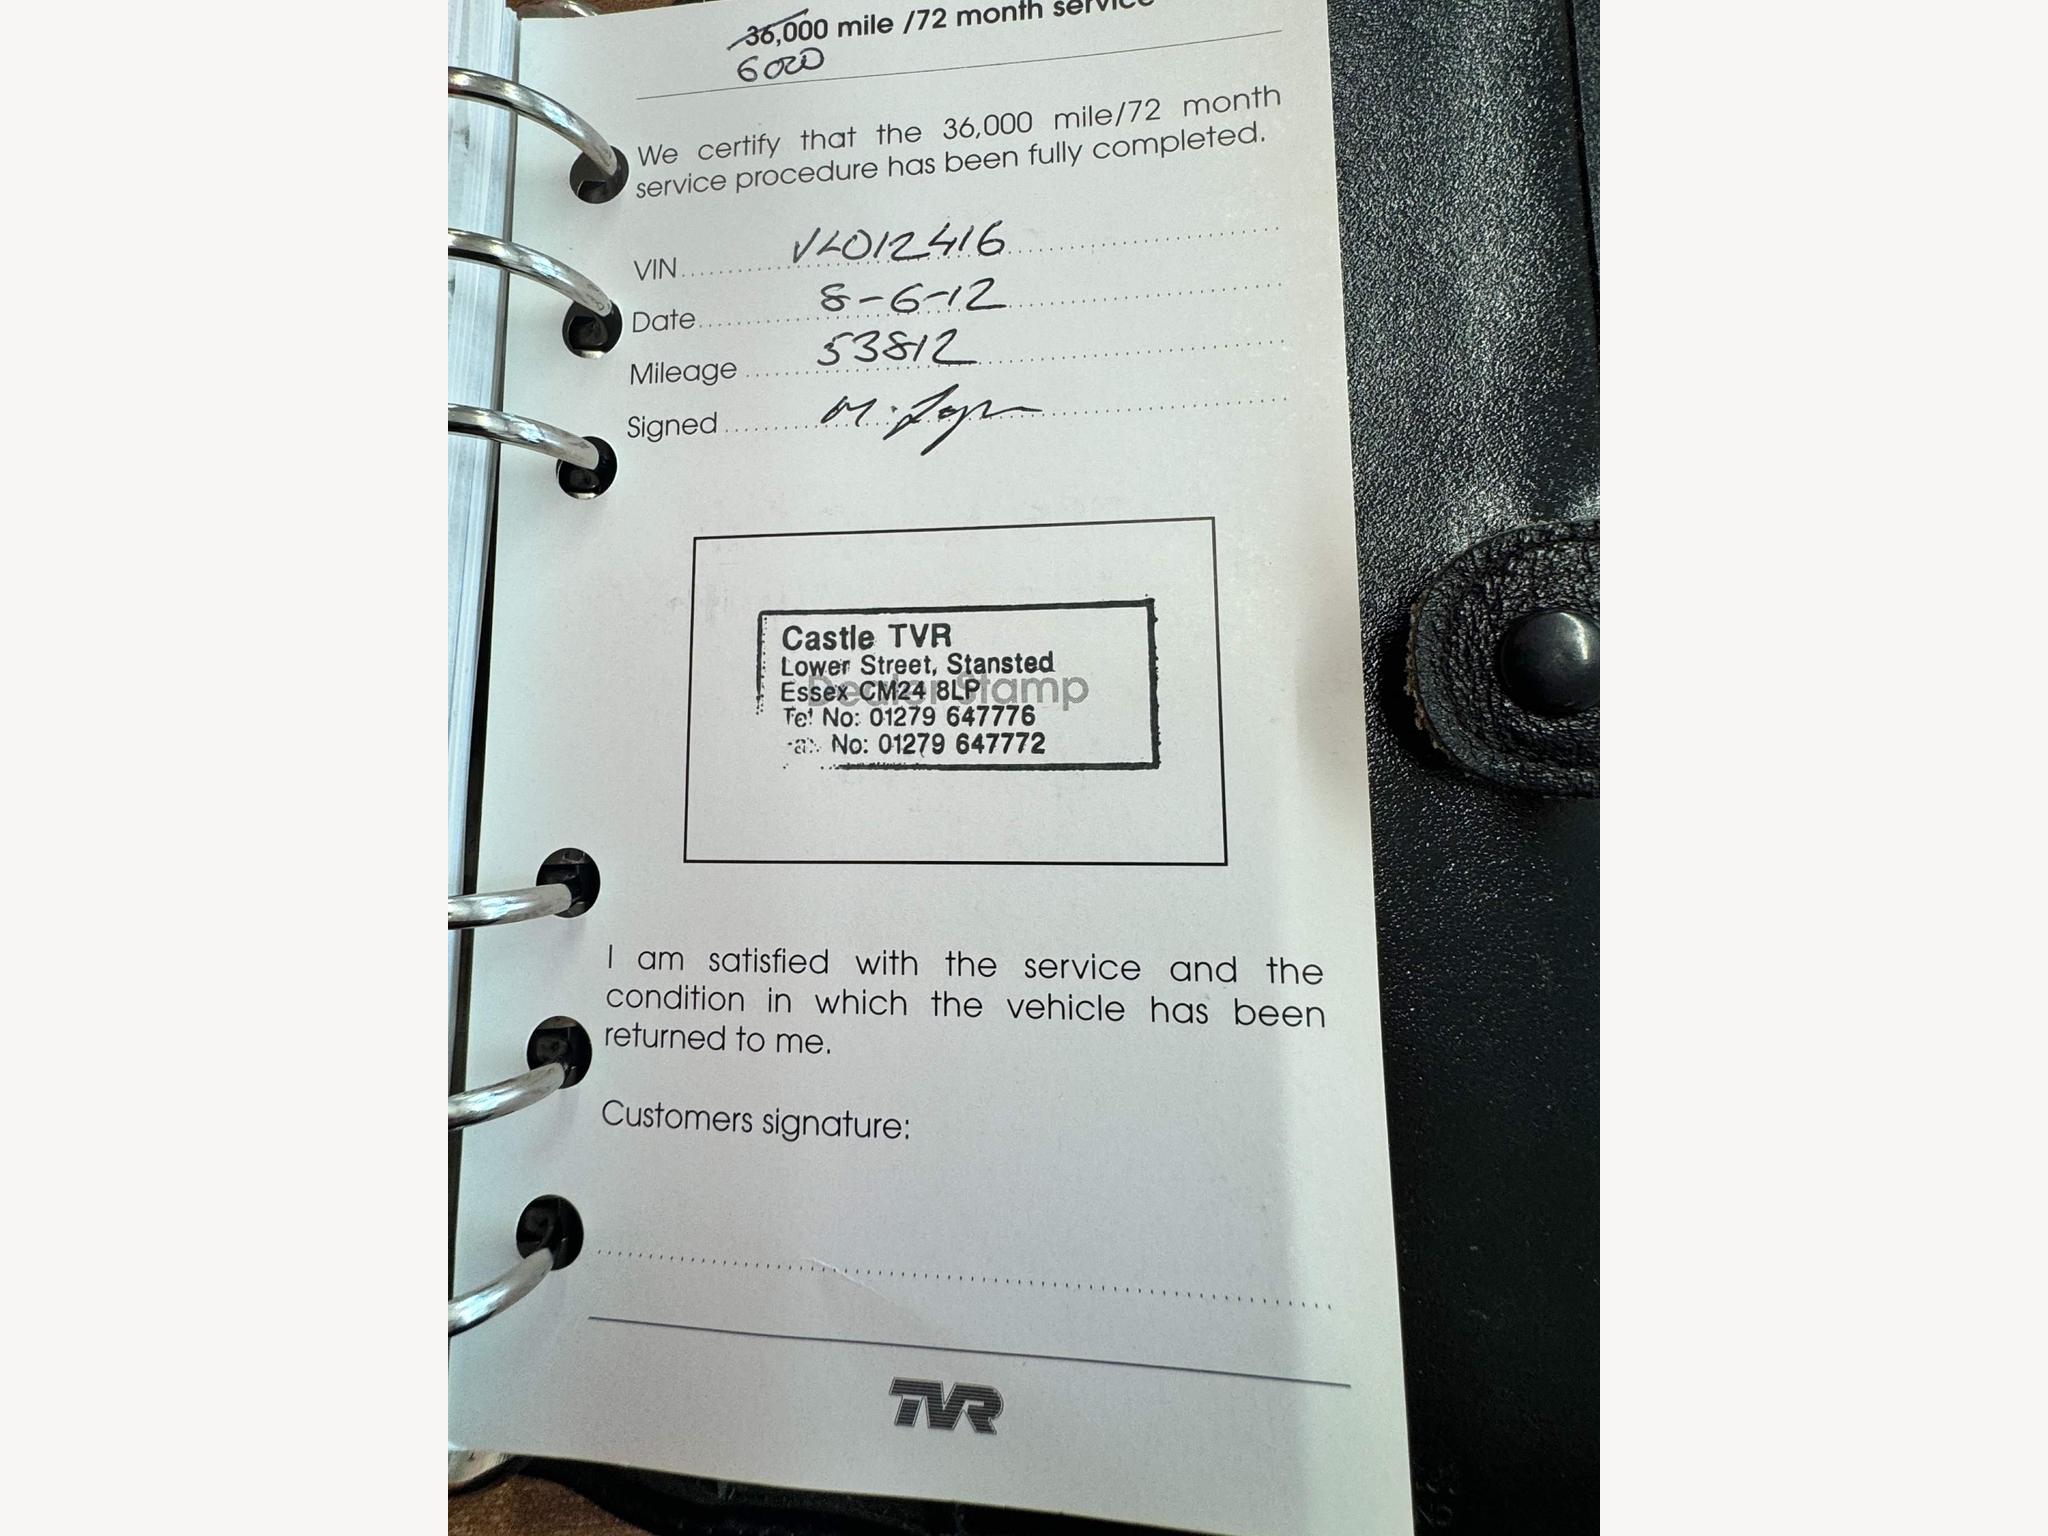 36,000 mile /72 month service
6000
We certify that the 36,000 mile/72 month
service procedure has been fully completed.
VIN VL012416
Date 8-6-12
Mileage 53812
Signed
Castle TVR
Lower Street, Stansted
Essex CM24 8LP
Dealer Stamp
Tel No: 01279 647776
No: 01279 647772
I am satisfied with the service and the
condition in which the vehicle has been
returned to me.
Customers signature:
TVR